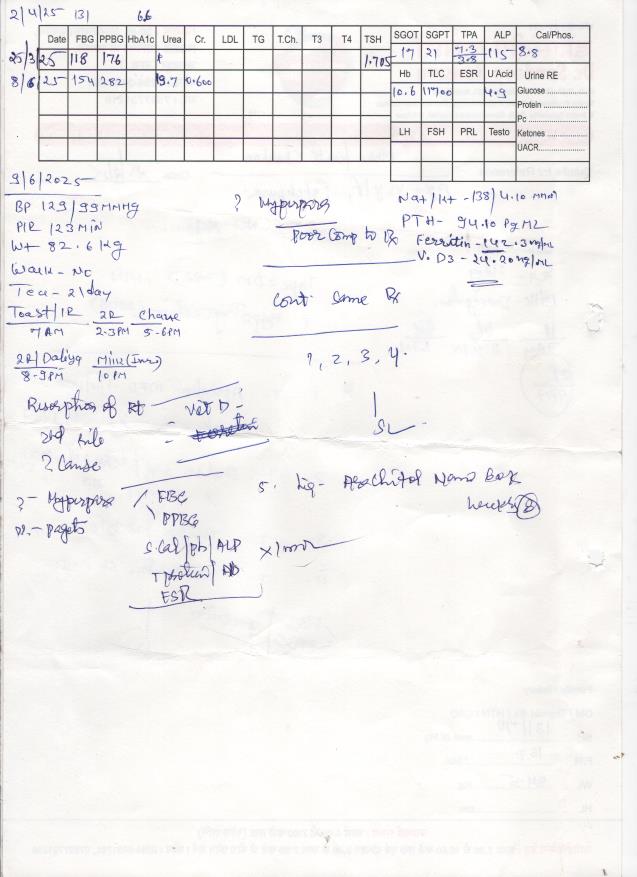 2/4/25 131 6.6
Date FBG PPBG HbA1c Urea Cr. LDL TG T.Ch. T3 T4 TSH
25/3/25 118 176 1.705
8/6/25 154 282 19.7 0.600
SGOT SGPT TPA ALP Cal/Phos.
17 21 7.3/3.8 115 8.8
Hb TLC ESR U Acid Urine RE
10.6 11700 4.9 Glucose
Protein
Pc
LH FSH PRL Testo Ketones
UACR
9/6/2025
BP 129/99MMHG
P/R 123MIN
Wt 82.6 Kg
Walk - NO
Tea - 2\day
Toast/1R 2R Chane
7AM 2-3PM 5-6PM
2R/Daliya Milk
8-9PM 10PM
? Hyperpara
Poor Comp to Rx
Cont Same Rx
1, 2, 3, 4.
Na+/K+ - 138/4.10 mmol
PTH - 94.10 Pg ML
Ferritin - 142.3 ng/mL
V. D3 - 24.20 ng/mL
Resorption of Rt
2nd
? Cause
Vit D
? - Hyperpara
pagets
FBG
PPBG
S. Cal/ph/ALP
T protein/Alb
ESR
5. Liq - Arachitol Nano